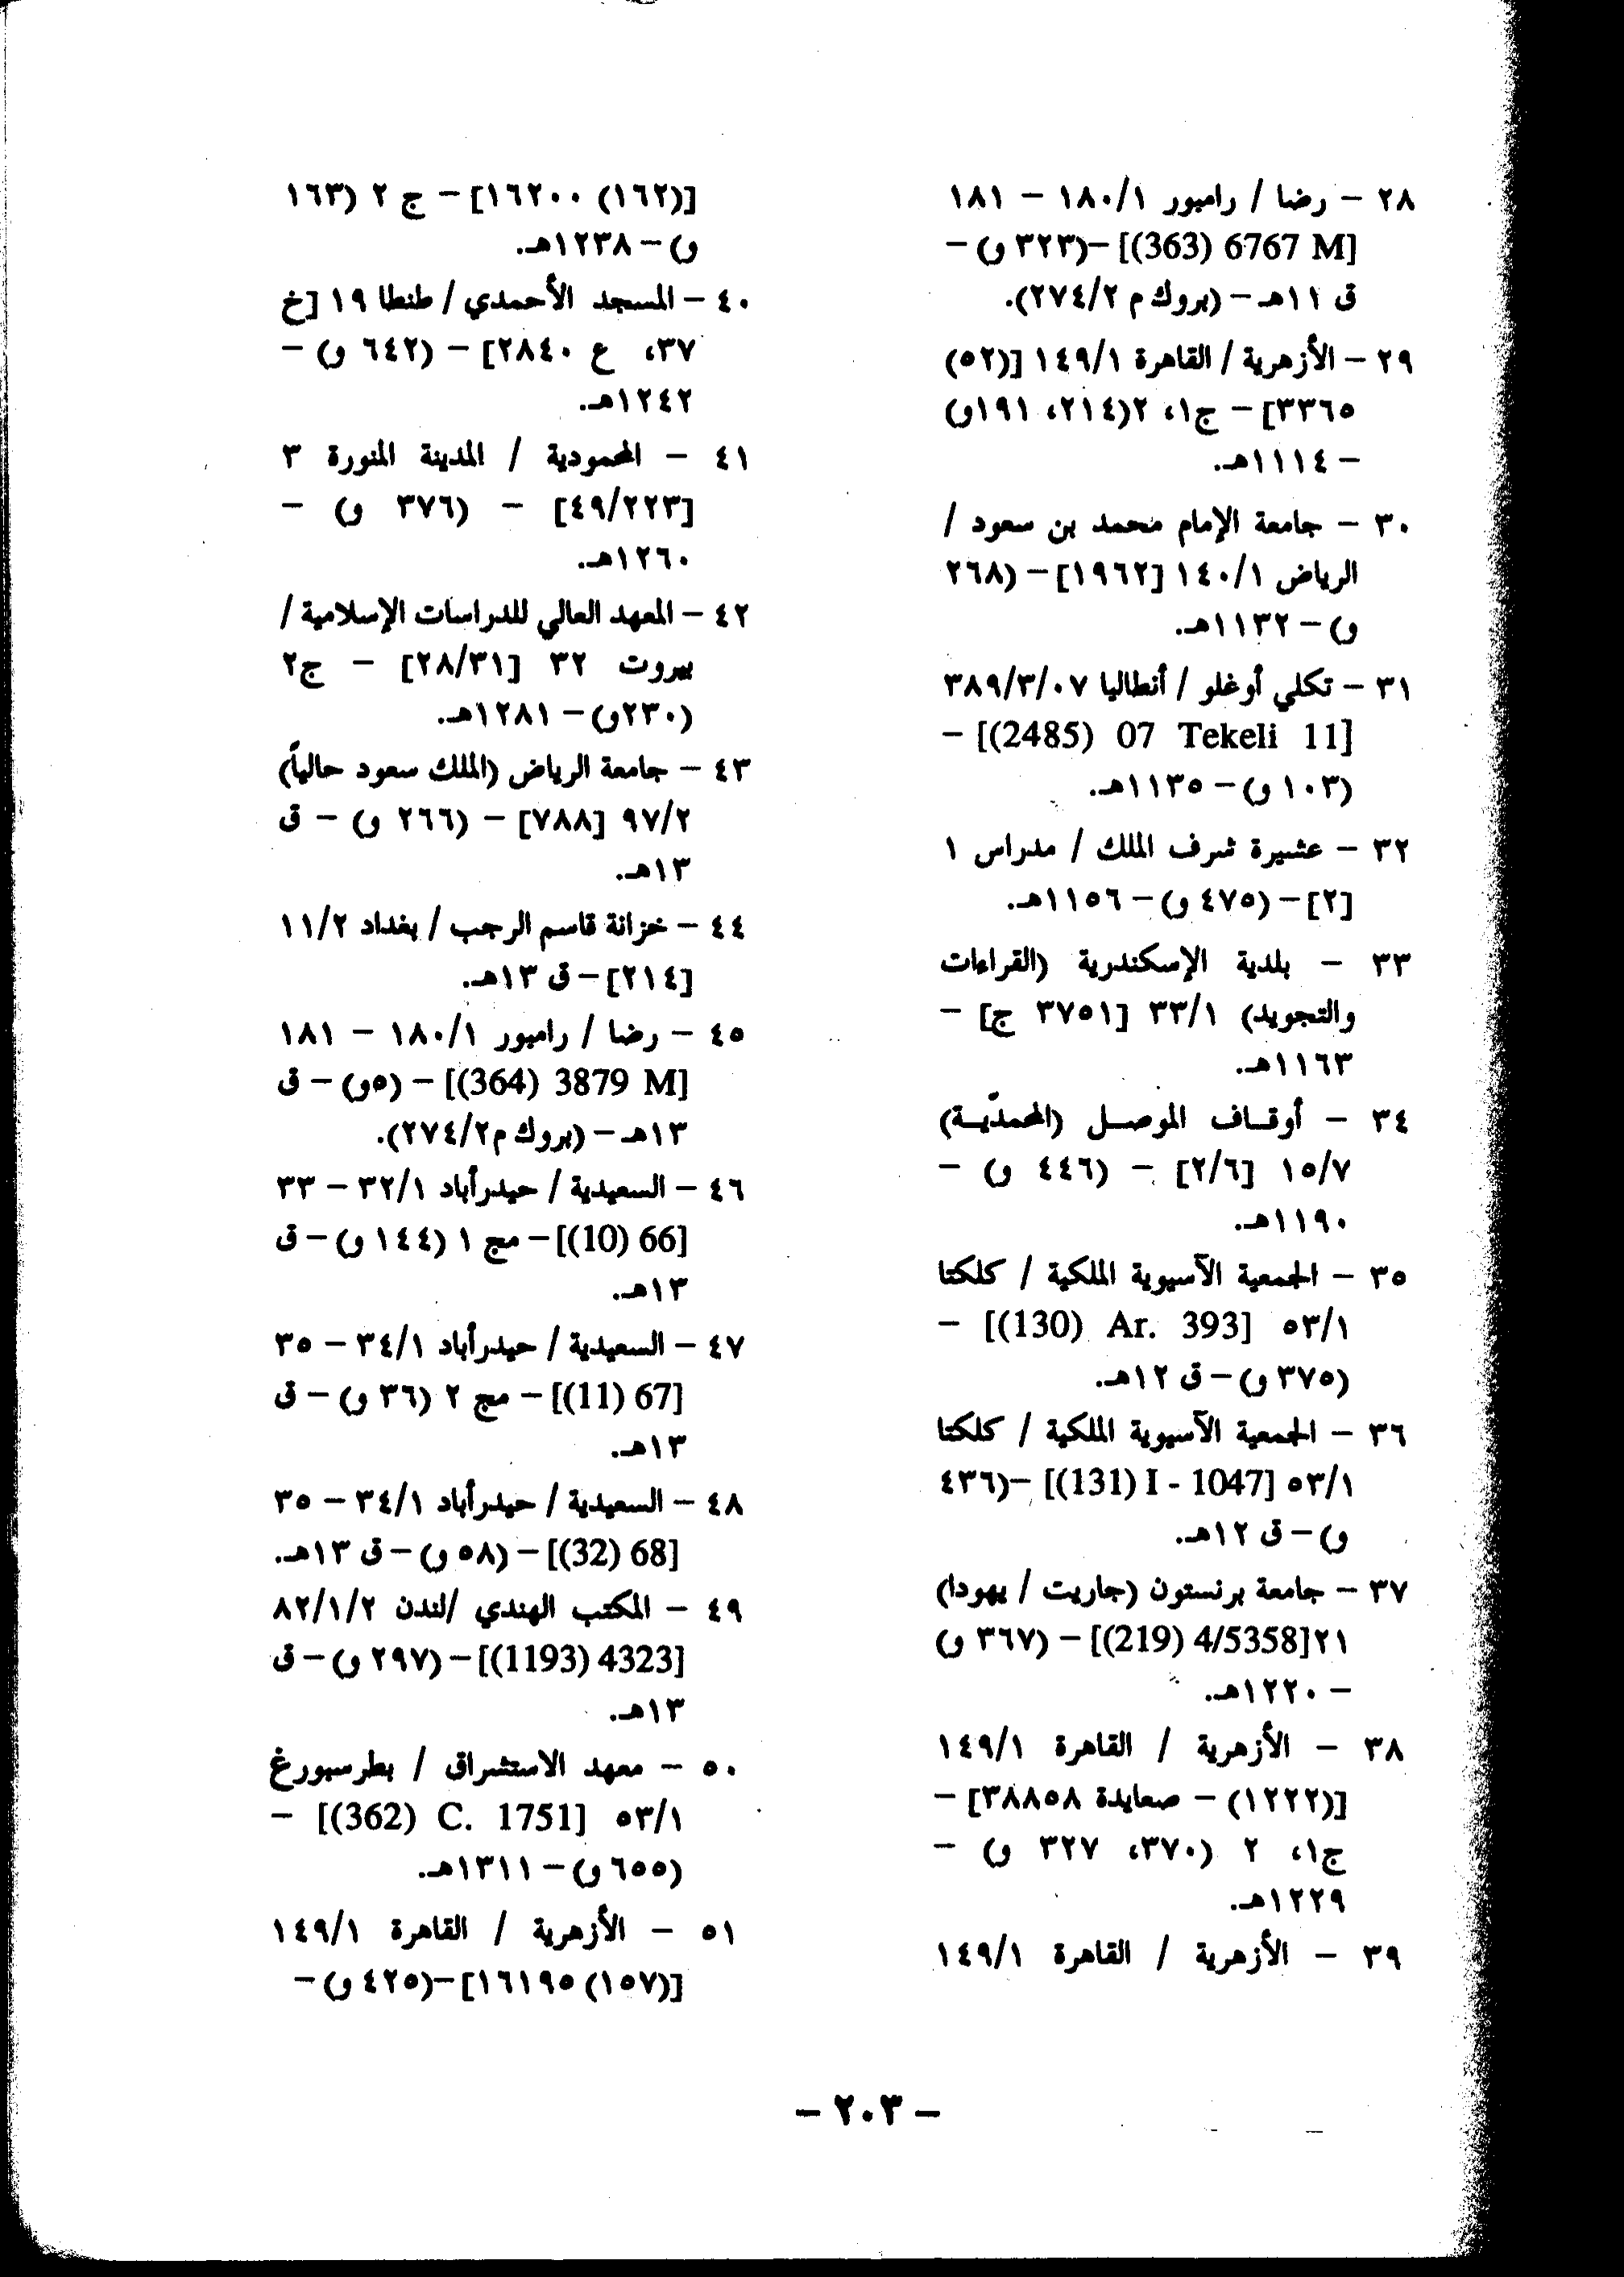 ٢٨ - رضا / رامبور ١/‏١٨٠ - ١٨١
[(363) 6767 M] - (٣٢٣ و) -
ق ١١هـ - (بروك م ٢/‏٢٧٤).
٢٩ - الأزهرية / القاهرة ١/‏١٤٩ [(٥٢)
٣٣٦٥] - ج١، ٢(٢١٤، ١٩١و)
- ١١١٤هـ.
٣٠ - جامعة الإمام محمد بن سعود /
الرياض ١/‏١٤٠ [١٩٦٢] - (٢٦٨
و) - ١١٣٢هـ.
٣١ - تكلي أوغلو / أنطاليا ٠٧/‏٣/‏٣٨٩
[(2485) 07 Tekeli 11] -
(١٠٣ و) - ١١٣٥هـ.
٣٢ - عشيرة شرف الملك / مدراس ١
[٢] - (٤٧٥ و) - ١١٥٦هـ.
٣٣ - بلدية الإسكندرية (القراءات
والتجويد) ١/‏٣٣ [٣٧٥١ ج] -
١١٦٣هـ.
٣٤ - أوقاف الموصل (المحمديّة)
٧/‏١٥ [٦/‏٢] - (٤٤٦ و) -
١١٩٠هـ.
٣٥ - الجمعية الآسيوية الملكية / كلكتا
١/‏٥٣ [(130) Ar. 393] -
(٣٧٥ و) - ق ١٢هـ.
٣٦ - الجمعية الآسيوية الملكية / كلكتا
١/‏٥٣ [(131) I - 1047] - (٤٣٦
و) - ق ١٢هـ.
٣٧ - جامعة برنستون (جاريت / يهودا)
٢١[(219) 4/5358] - (٣٦٧ و)
- ١٢٢٠هـ.
٣٨ - الأزهرية / القاهرة ١/‏١٤٩
[(١٢٢٢) - صعايدة ٣٨٨٥٨] -
ج١، ٢ (٣٧٠، ٣٢٧ و) -
١٢٢٩هـ.
٣٩ - الأزهرية / القاهرة ١/‏١٤٩
[(١٦٢) ١٦٢٠٠] - ج ٢ (١٦٣
و) - ١٢٣٨هـ.
٤٠ - المسجد الأحمدي / طنطا ١٩ [خ
٣٧، ع ٢٨٤٠] - (٦٤٢ و) -
١٢٤٢هـ.
٤١ - المحمودية / المدينة المنورة ٣
[٢٢٣/‏٤٩] - (٣٧٦ و) -
١٢٦٠هـ.
٤٢ - المعهد العالي للدراسات الإسلامية /
بيروت ٣٢ [٣١/‏٢٨] - ج٢
(٢٣٠و) - ١٢٨١هـ.
٤٣ - جامعة الرياض (الملك سعود حالياً)
٢/‏٩٧ [٧٨٨] - (٢٦٦ و) - ق
١٣هـ.
٤٤ - خزانة قاسم الرجب / بغداد ٢/‏١١
[٢١٤] - ق ١٣هـ.
٤٥ - رضا / رامبور ١/‏١٨٠ - ١٨١
[(364) 3879 M] - (٥و) - ق
١٣هـ - (بروك م٢/‏٢٧٤).
٤٦ - السعيدية / حيدرأباد ١/‏٣٢ - ٣٣
[(10) 66] - مج ١ (١٤٤ و) - ق
١٣هـ.
٤٧ - السعيدية / حيدرأباد ١/‏٣٤ - ٣٥
[(11) 67] - مج ٢ (٣٦ و) - ق
١٣هـ.
٤٨ - السعيدية / حيدرأباد ١/‏٣٤ - ٣٥
[(32) 68] - (٥٨ و) - ق ١٣هـ.
٤٩ - المكتب الهندي /لندن ٢/‏١/‏٨٢
[(1193) 4323] - (٢٩٧ و) - ق
١٣هـ.
٥٠ - معهد الاستشراق / بطرسبورغ
١/‏٥٣ [(362) C. 1751] -
(٦٥٥ و) - ١٣١١هـ.
٥١ - الأزهرية / القاهرة ١/‏١٤٩
[(١٥٧) ١٦١٩٥] - (٤٢٥ و) -
- ٢٠٣ -